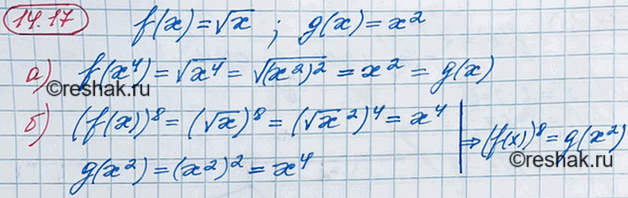 14.17 f(x)=√x ; g(x)=x²
а) f(x⁴)=√x⁴=√(x²)²=x²=g(x)
б) (f(x))⁸=(√x)⁸=(√x²)⁴=x⁴
g(x²)=(x²)²=x⁴
⇒(f(x))⁸=g(x²)
©reshak.ru